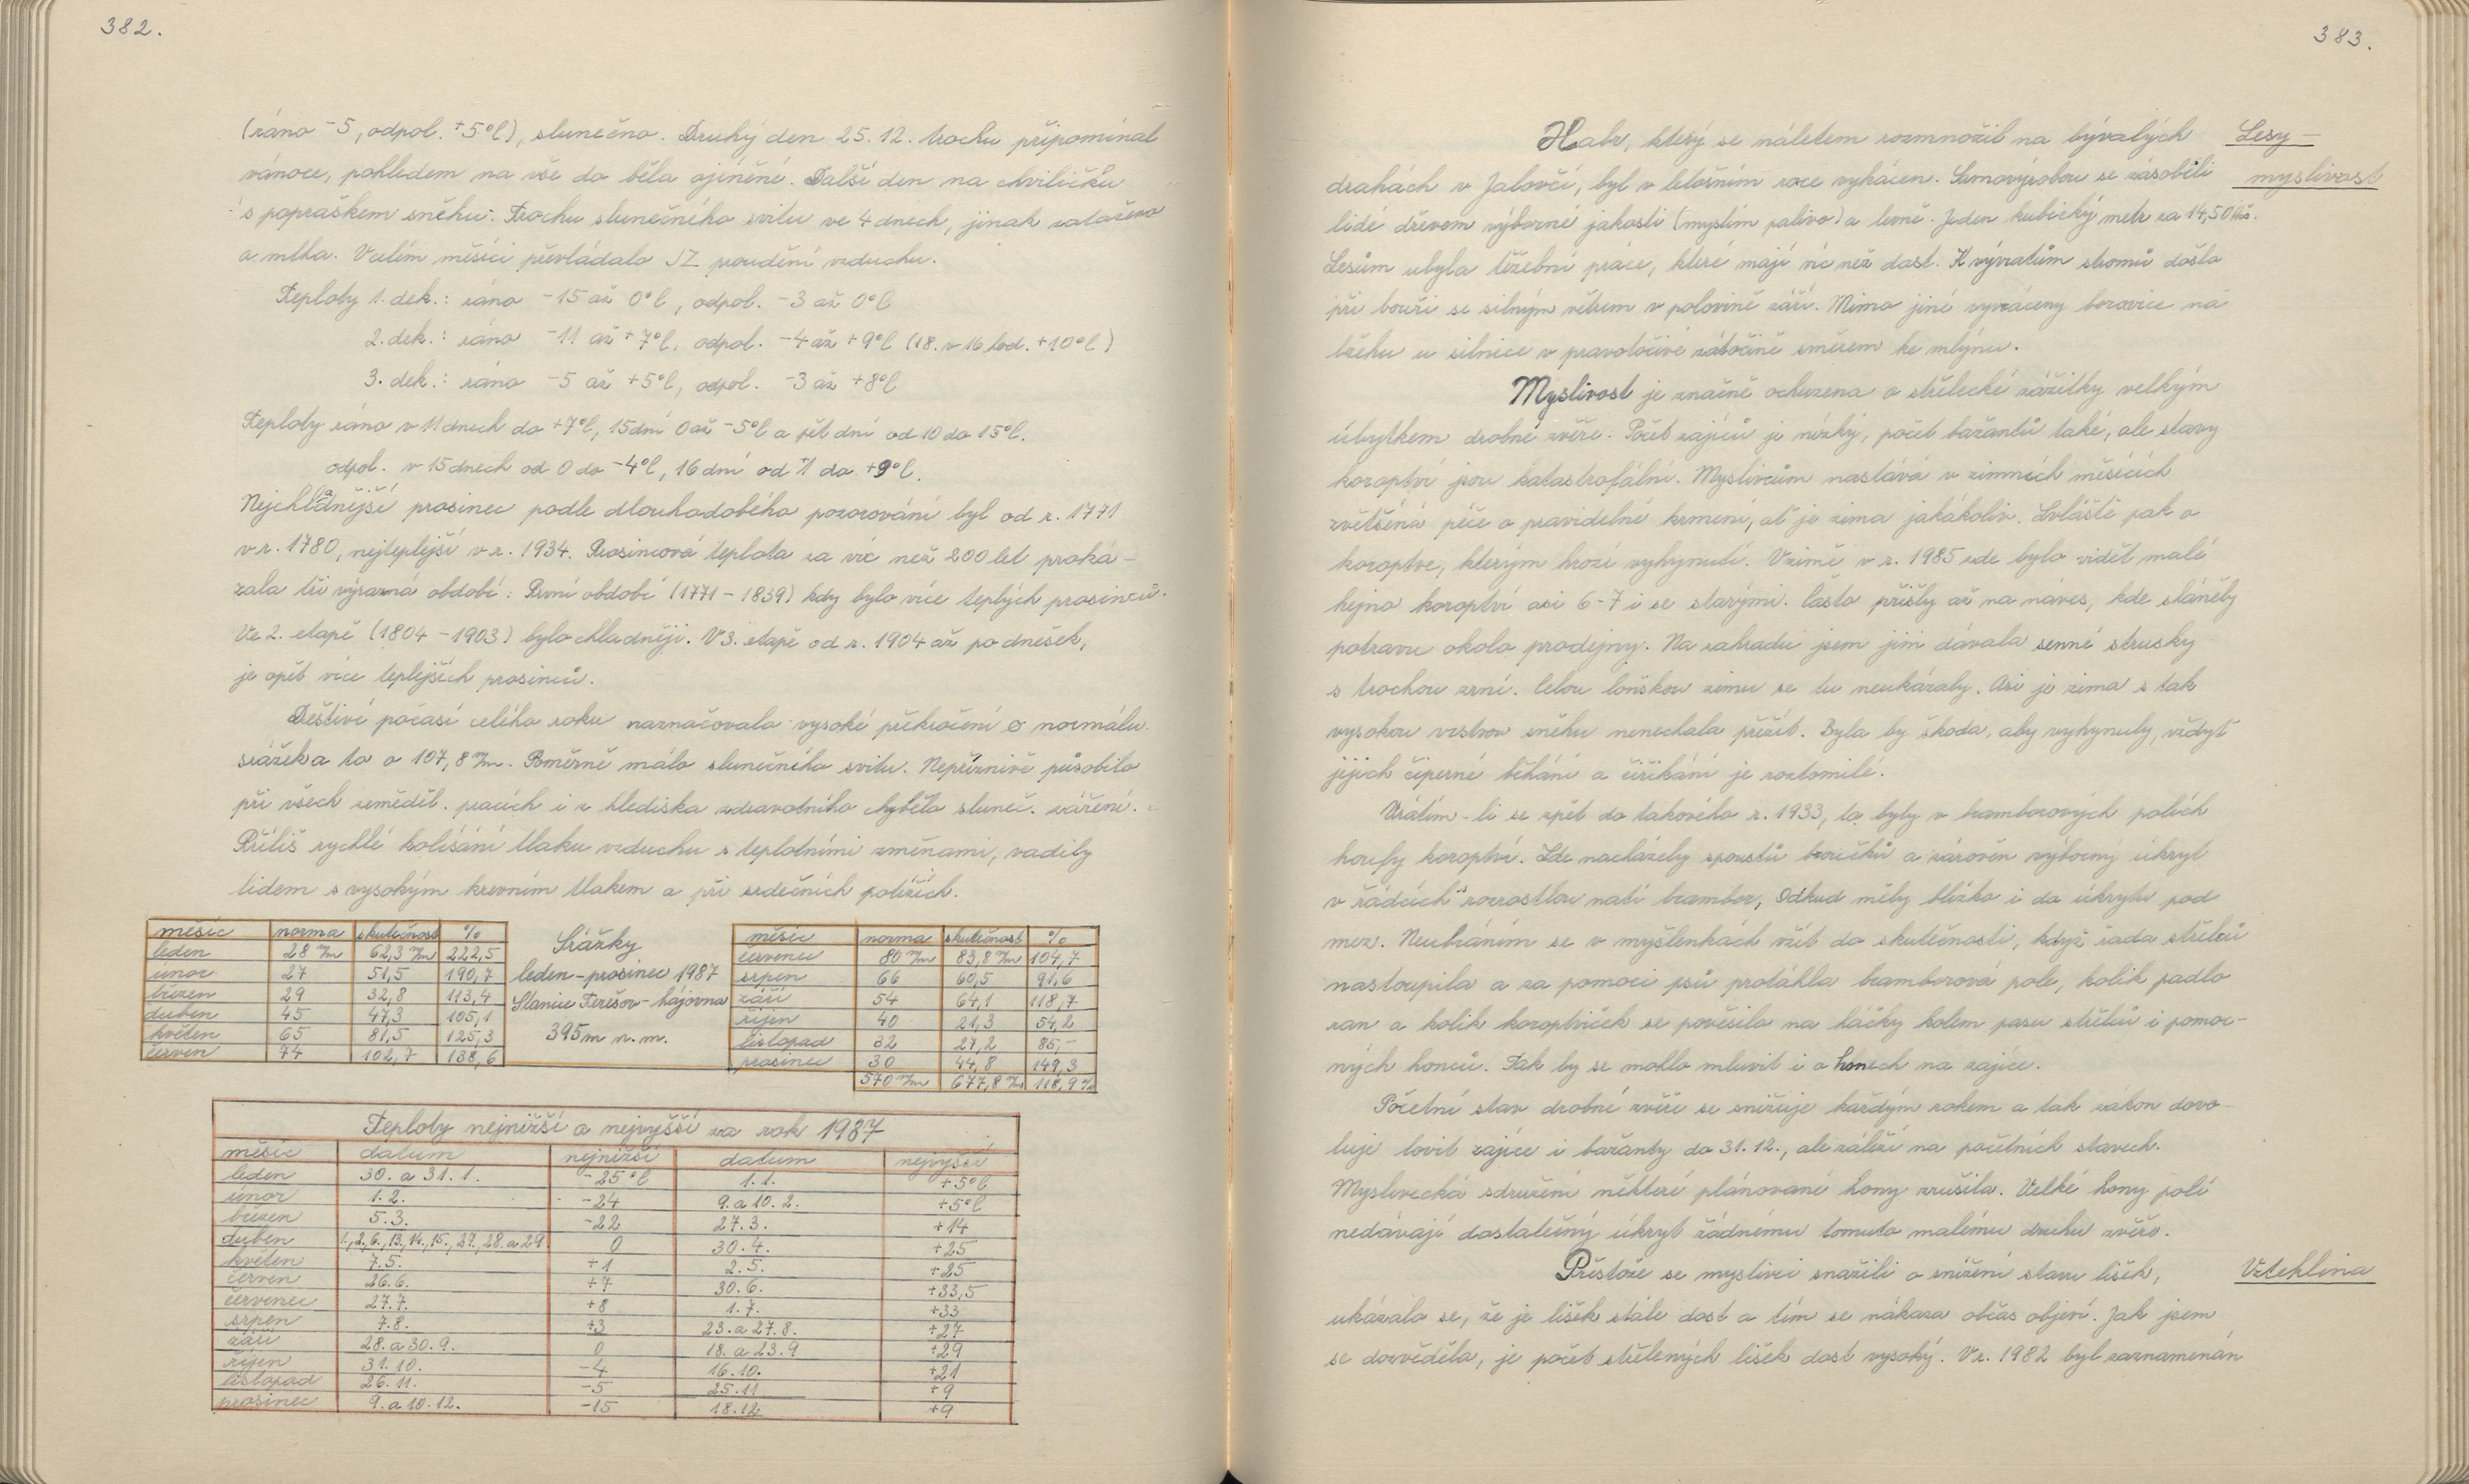 382.
(ráno -5, odpol. +5°C), slunečno. Druhý den 25.12. trochu připomínal
vánoce, pohledem na vše do běla ojíněné. Další den na chviličku
s popraškem sněhu. Trochu slunečného svitu ve 4 dnech, jinak zataženo
a mlha. V celém měsíci převládalo JZ proudění vzduchu.
Teploty 1. dek.: ráno -15 až 0°C, odpol. -3 až 0°C
2. dek.: ráno -11 až +7°C, odpol. -4 až +9°C (18. v 16 hod. +10°C)
3. dek.: ráno -5 až +5°C, odpol. -3 až +8°C
Teploty ráno v 11 dnech do +7°C, 15 dní 0 až -5°C a pět dní od 10 do 15°C.
odpol. v 15 dnech od 0 do -4°C, 16 dní od +1 do +9°C.
Nejchladnější prosinec podle dlouhodobého pozorování byl od r. 1771
v r. 1780, nejteplejší v r. 1934. Prosincová teplota za víc než 200 let proká-
zala tři výrazná období: První období (1771 - 1839) kdy bylo více teplých prosinců.
Ve 2. etapě (1804 - 1903) bylo chladněji. V 3. etapě od r. 1904 až po dnešek,
je opět více teplejších prosinců.
Deštivé počasí celého roku naznačovala vysoké překročení o normálu
srážek a to o 107,8 m/m. Poměrně málo slunečního svitu. Nepříznivě působilo
při všech zeměděl. pracích i z hlediska zdravotního chybělo sluneč. záření.
Příliš rychlé kolísání tlaku vzduchu s teplotními změnami, vadily
lidem s vysokým krevním tlakem a při srdečních potížích.
měsíc norma skutečnost %
leden 28 m/m 62,3 m/m 222,5
únor 27 51,5 190,7
březen 29 32,8 113,4
duben 45 47,3 105,1
květen 65 81,5 125,3
červen 74 102,7 138,6
Srážky
leden - prosinec 1987
Stanice Terešov - hájovna
395 m n. m.
měsíc norma skutečnost %
červenec 80 m/m 83,8 m/m 104,7
srpen 66 60,5 91,6
září 54 64,1 118,7
říjen 40 21,3 54,2
listopad 32 27,2 85,-
prosinec 30 44,8 149,3
570 m/m 677,8 m/m 118,9 %
Teploty nejnižší a nejvyšší za rok 1987
měsíc datum nejnižší datum nejvyšší
leden 30. a 31. 1. -25°C 1.1. +5°C
únor 1.2. -24 9. a 10. 2. +5°C
březen 5.3. -22 27.3. +14
duben 1., 2., 6., 13., 14., 15., 27., 28. a 29. 0 30.4. +25
květen 7.5. +1 2.5. +25
červen 26.6. +7 30.6. +33,5
červenec 27.7. +8 1.7. +33
srpen 7.8. +3 23. a 27.8. +27
září 28. a 30.9. 0 18. a 23.9 +29
říjen 31.10. -4 16.10. +21
listopad 26.11. -5 25.11 +9
prosinec 9. a 10.12. -15 18.12 +9
383.
Habr, který se náletem rozmnožil na bývalých
Lesy -
drahách v Jalovčí, byl v letošním roce vykácen. Samovýrobou se zásobili
myslivost
lidé dřevem výborné jakosti (myslím palivo) a levně. Jeden kubický metr za 14,50 Kčs.
Lesům ubyla těžební práce, které mají víc než dost. K vývratům stromů došlo
při bouři se silným větrem v polovině září. Mimo jiné vyvráceny borovice na
břehu u silnice v pravotočivé zátočině směrem ke mlýnu.
Myslivost je značně ochuzena o střelecké zážitky velkým
úbytkem drobné zvěře. Počet zajíců je nízký, počet bažantů také, ale stavy
koroptví jsou katastrofální. Myslivcům nastává v zimních měsících
zvětšená péče o pravidelné krmení, ať je zima jakákoliv. Zvláště pak o
koroptve, kterým hrozí vyhynutí. V zimě v r. 1985 zde bylo vidět malé
hejno koroptví asi 6-7 i se starými. Často přišly až na náves, kde sháněly
potravu okolo prodejny. Na zahradu jsem jim dávala senné strusky
s trochou zrní. Celou loňskou zimu se tu neukázaly. Asi je zima s tak
vysokou vrstvou sněhu nenechala přežít. Byla by škoda, aby vyhynuly, vždyť
jejich čiperné běhání a čiřikání je roztomilé.
Vrátím-li se zpět do takového r. 1933, to byly v bramborových polích
houfy koroptví. Zde nacházely spoustu broučků a zároveň výborný úkryt
v řádcích rozrostlou natí brambor, odkud měly blízko i do úkrytu pod
mez. Neubráním se v myšlenkách vžít do skutečnosti, když řada střelců
nastoupila a za pomoci psů protáhla bramborová pole, kolik padlo
ran a kolik koroptviček se pověsilo na háčky kolem pasu střelců i pomoc-
ných honců. Tak by se mohlo mluvit i o honech na zajíce.
Početní stav drobné zvěře se snižuje každým rokem a tak zákon dovo-
luje lovit zajíce i bažanty do 31.12., ale záleží na početních stavech.
Myslivecká sdružení některé plánované hony zrušila. Velké hony polí
nedávají dostatečný úkryt žádnému tomuto malému druhu zvěře.
Přestože se myslivci snažili o snížení stavu lišek,
Vzteklina
ukázalo se, že je lišek stále dost a tím se nákaza občas objeví. Jak jsem
se dozvěděla, je počet střelených lišek dost vysoký. V r. 1982 byl zaznamenán